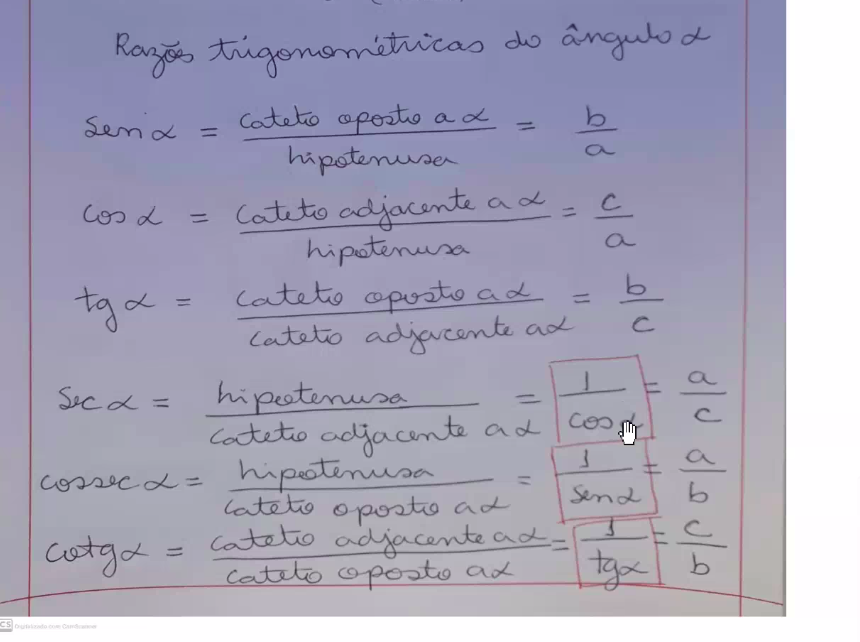 Razões trigonométricas do ângulo α
sen α = cateto oposto a α / hipotenusa = b / a
cos α = cateto adjacente a α / hipotenusa = c / a
tg α = cateto oposto a α / cateto adjacente a α = b / c
sec α = hipotenusa / cateto adjacente a α = 1 / cos α = a / c
cossec α = hipotenusa / cateto oposto a α = 1 / sen α = a / b
cotg α = cateto adjacente a α / cateto oposto a α = 1 / tg α = c / b
CS Digitalizado com CamScanner